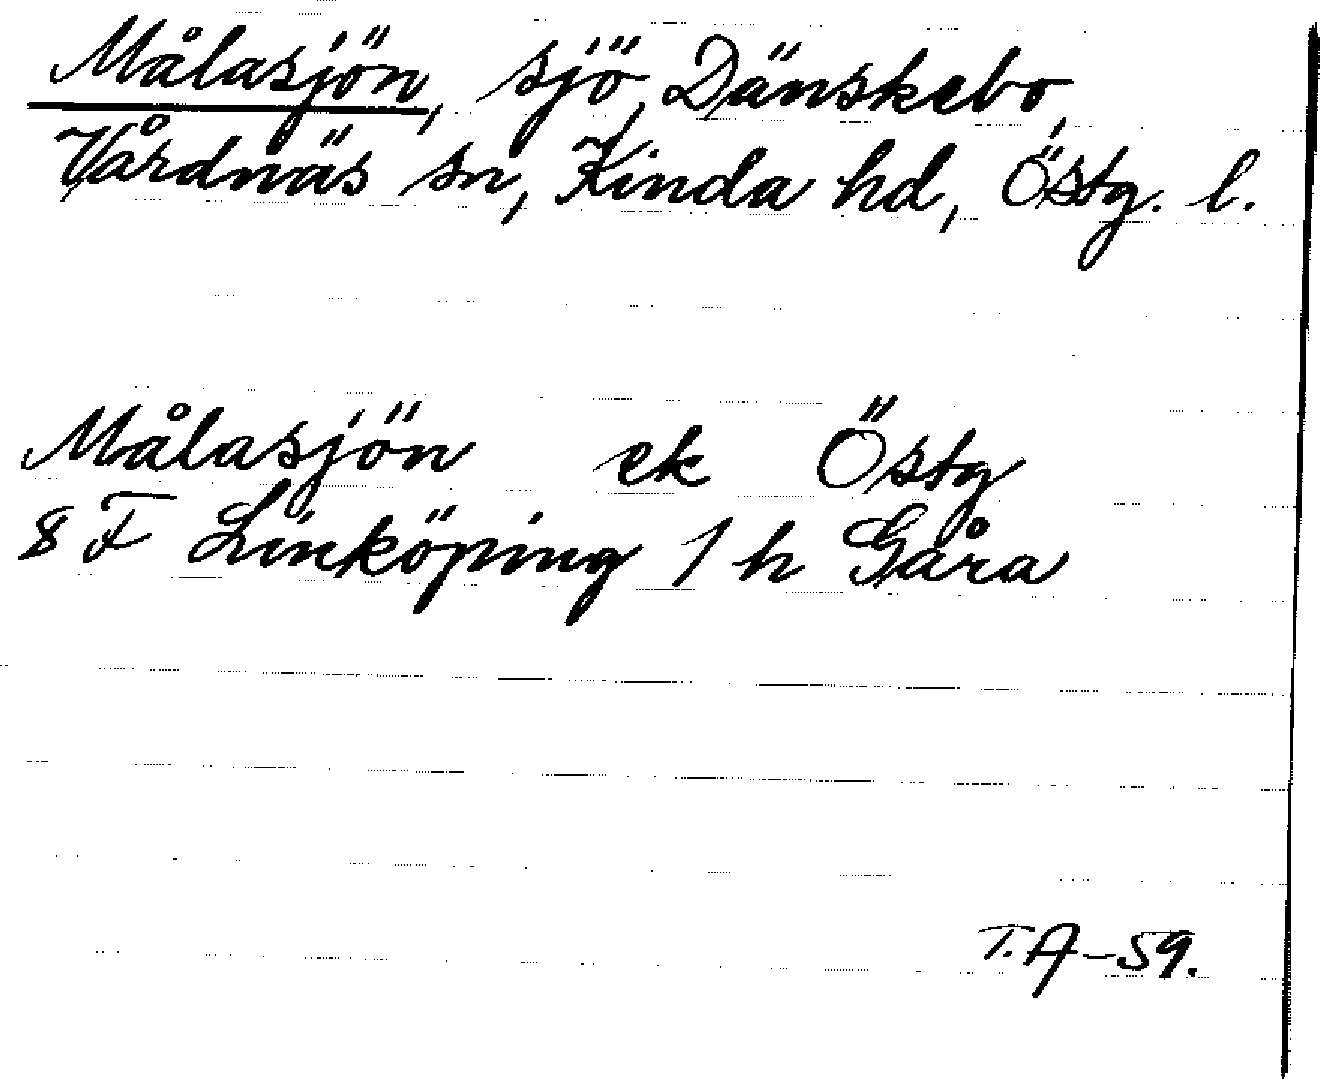 Målasjön, sjö, Dänskebo,
Vårdnäs sn, Kinda hd, Östg. l.
Målasjön ek Östg
8 F Linköping 1 h Gåra
T.A-59.